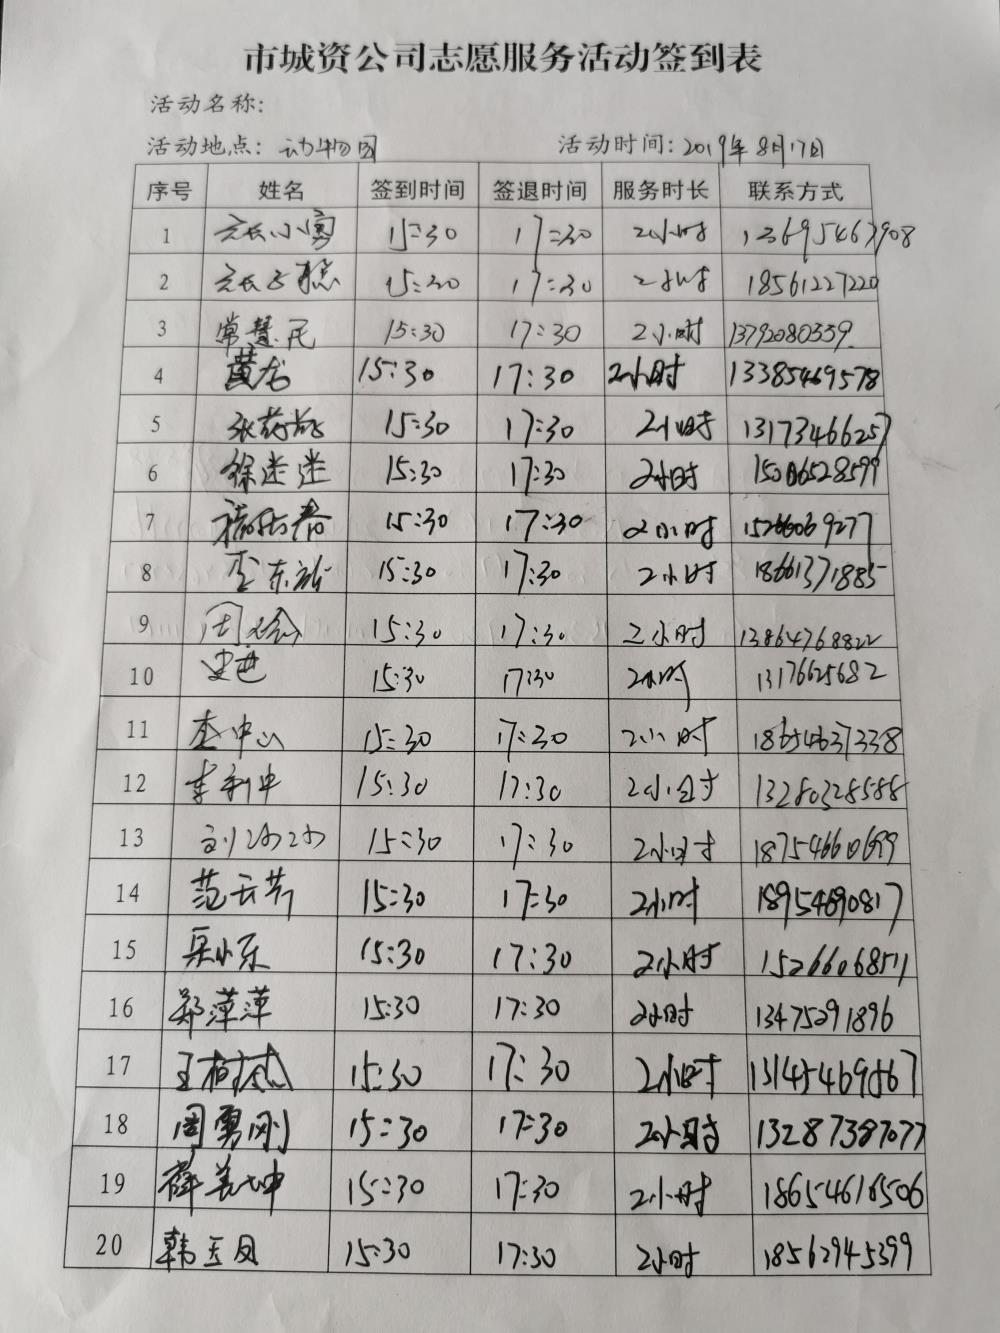 市城资公司志愿服务活动签到表
活动名称:
活动地点: 动物园 活动时间: 2019年8月17日
序号 姓名 签到时间 签退时间 服务时长 联系方式
1 15:30 17:30 2小时 13695467908
2 15:30 17:30 2小时 18561227220
3 常慧民 15:30 17:30 2小时 13792080559
4 黄龙 15:30 17:30 2小时 13385469578
5 15:30 17:30 2小时 13173466257
6 徐迷迷 15:30 17:30 2小时 15006528599
7 15:30 17:30 2小时 15266069277
8 15:30 17:30 2小时 18661371885
9 15:30 17:30 2小时 13864768822
10 史艳 15:30 17:30 2小时
11 李中山 15:30 17:30 2小时 18654637338
12 李利中 15:30 17:30 2小时 13280328588
13 15:30 17:30 2小时 18754660699
14 范云芳 15:30 17:30 2小时 18954690817
15 吴小东 15:30 17:30 2小时 15266068511
16 郑萍萍 15:30 17:30 2小时 13475291896
17 15:30 17:30 2小时
18 周勇刚 15:30 17:30 2小时 13287387077
19 薛美坤 15:30 17:30 2小时 18654616506
20 韩玉凤 15:30 17:30 2小时 18562945399